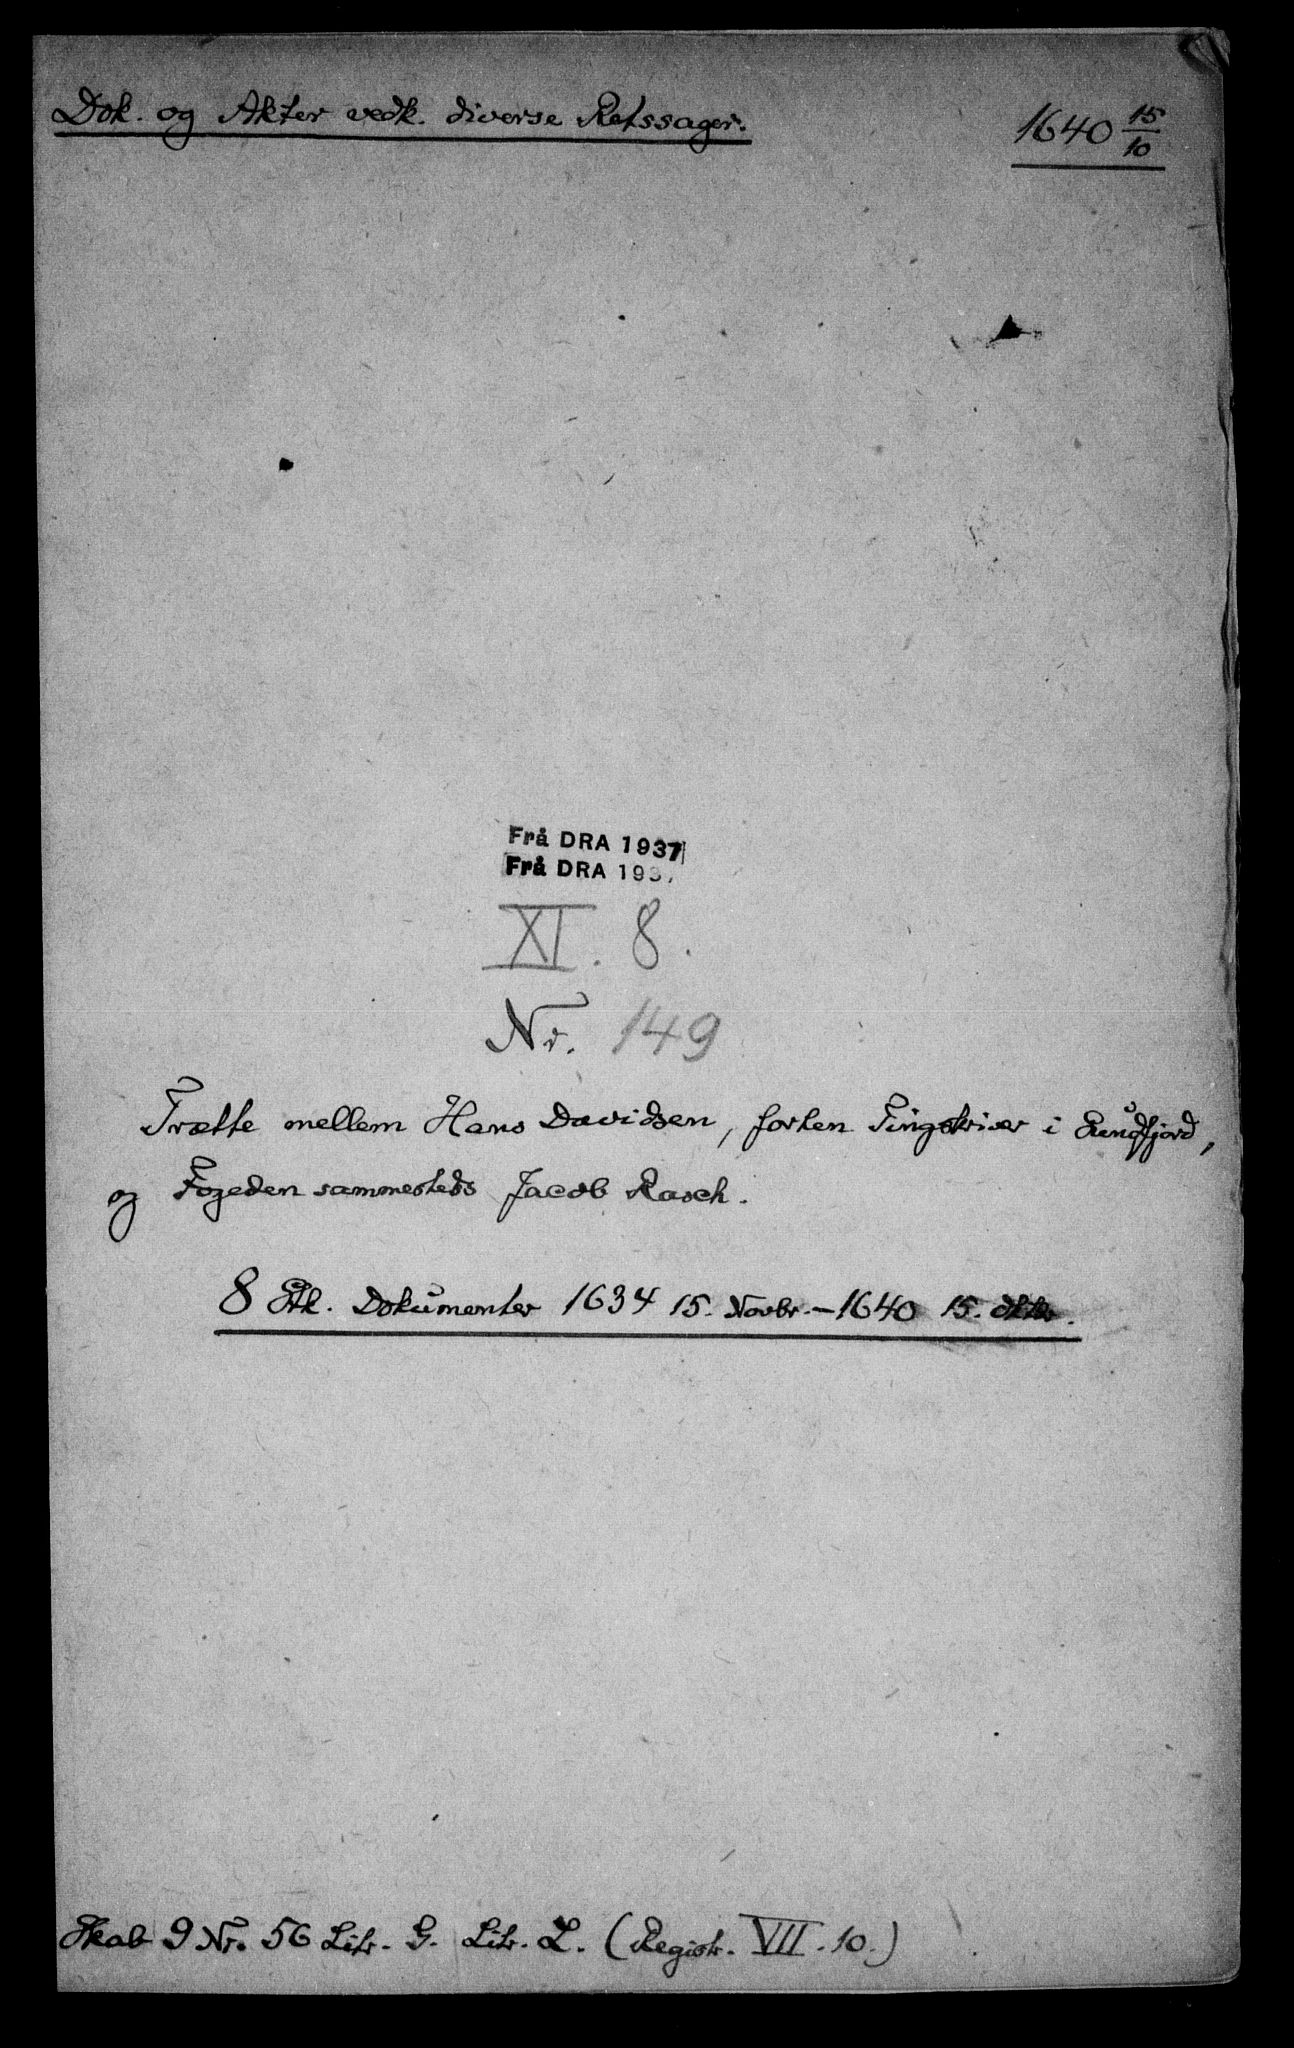 Dok. og Akter vedk. diverse Retssager.
1640 15/10
Frå DRA 1937
Frå DRA 193
XI. 8.
Nr. 149
Trætte mellem Hans Davidsen, forhen Tingskriver i Sundfjord,
og Fogeden sammesteds Jacob Rasch.
8 Stk. Dokumenter 1634 15. Novbr. – 1640 15. Oktbr.
Skab 9 Nr. 56 Litr. G. Litr. L. (Registr. VII. 10.)